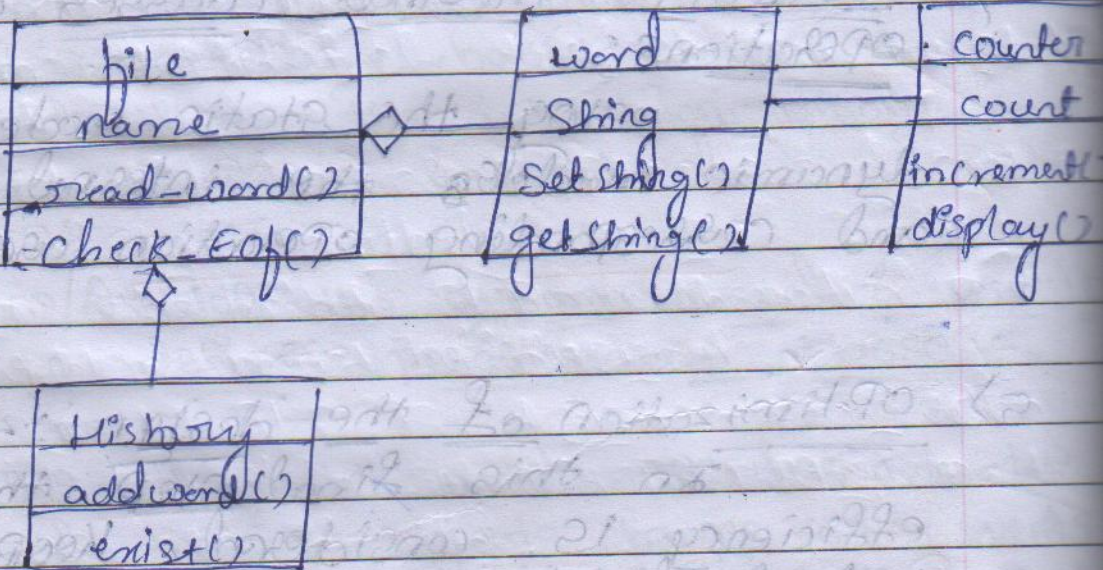 file
name
read-word()
check-EOf()
word
String
SetString()
getString()
counter
count
increment(
display()
History
addword()
exist()